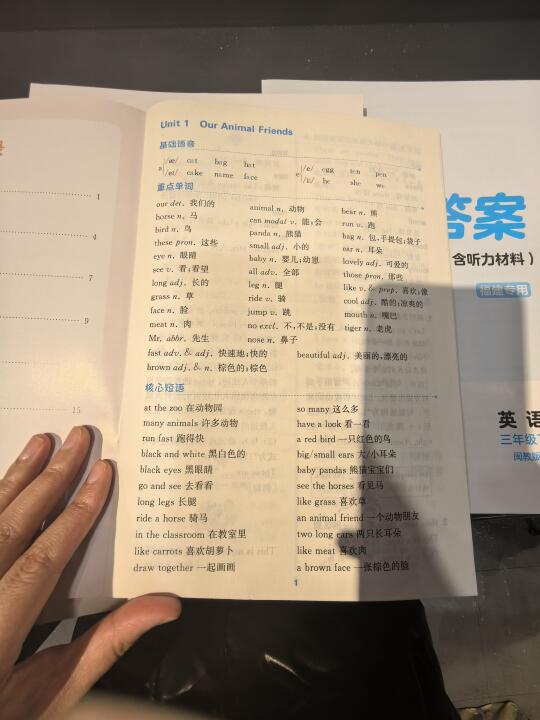 Unit 1 Our Animal Friends
基础语音
a /æ/ cat bag hat e /e/ egg ten pen
/eɪ/ cake name face /iː/ he she we
重点单词
our det. 我们的 animal n. 动物 bear n. 熊
horse n. 马 can modal v. 能;会 run v. 跑
bird n. 鸟 panda n. 熊猫 bag n. 包;手提包;袋子
these pron. 这些 small adj. 小的 ear n. 耳朵
eye n. 眼睛 baby n. 婴儿;幼崽 lovely adj. 可爱的
see v. 看;看望 all adv. 全部 those pron. 那些
long adj. 长的 leg n. 腿 like v. & prep. 喜欢;像
grass n. 草 ride v. 骑 cool adj. 酷的;凉爽的
face n. 脸 jump v. 跳 mouth n. 嘴巴
meat n. 肉 no excl. 不,不是;没有 tiger n. 老虎
Mr. abbr. 先生 nose n. 鼻子
fast adv. & adj. 快速地;快的 beautiful adj. 美丽的,漂亮的
brown adj. & n. 棕色的;棕色
核心短语
at the zoo 在动物园 so many 这么多
many animals 许多动物 have a look 看一看
run fast 跑得快 a red bird 一只红色的鸟
black and white 黑白色的 big/small ears 大/小耳朵
black eyes 黑眼睛 baby pandas 熊猫宝宝们
go and see 去看看 see the horses 看见马
long legs 长腿 like grass 喜欢草
ride a horse 骑马 an animal friend 一个动物朋友
in the classroom 在教室里 two long ears 两只长耳朵
like carrots 喜欢胡萝卜 like meat 喜欢肉
draw together 一起画画 a brown face 一张棕色的脸
1
1
4
7
9
15
答案
含听力材料)
福建专用
英语
三年级
闽教版